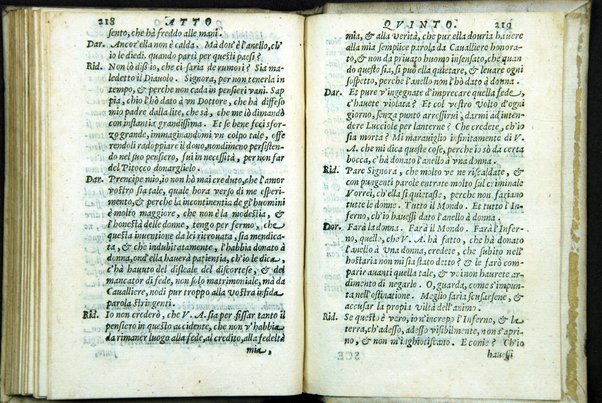 218 ATTO
sento, che hà freddo alle mani.
Dar. Ancor'ella non è calda. Mà dou'è l'anello, ch'
io le diedi, quando parti per questi paesi?
Rid. Non lò diss'io, che ci saria de rumori? Sia ma-
ledetto il Diauolo. Signora, per non tenerla in
tempo, & perche non cada in pensieri vani. Sap
pia, chio l'hò dato à vn Dottore, che hà diffeso
mio padre dalla lite, che sà, che me lò dimandò
con instantia grandissima. Et se bene feci sfor-
zo grande, immaginandomi vn colpo tale, offe
rendoli radoppiare il dono, nondimeno persisten-
do nel suo pensiero, fui in necessità, per non far
del Pitocco donarglielo.
Dar. Prencipe mio, io non hò mai creduto, che l'amor
vostro sia tale, quale hora verso di me esperi-
mento, & perche la incontinentia de gl'huomini
è molto maggiore, che non è la modestia, &
l'honestà delle donne, tengo per fermo, che
questa inuentione da lei ritrouata, sia mendica-
ta, & che indubitatamente, l'habbia donato à
donna, ond'ella hauerà patientia, ch'io le dica,
c'hà hauuto del disleale del discortese, & del
mancator di fede, non solo matrimoniale, mà da
Caualliere, nodi pur troppo alla vostra infida
parola stringenti.
Rid. Io non crederò, che V. A. sia per fissar tanto il
pensiero in questo accidente, che non v'habbia
da rimaner luogo alla fede, al credito, alla fedeltà
mia,
QVINTO. 219
mia, & alla verità, che pur ella douria hauere
alla mia semplice parola da Caualliere honora-
to, & non da priuato huomo insensato, che quan
do questo sia, si può ella quietare, & leuare ogni
sospetto, perche l'anello non l'hò dato à donna.
Dar. Et pure v'ingegnate d'imprecare quella fede,
c'hauete violata? Et col vestro Volto d'ogni
giorno, senza punto arrossirui, darmi ad inten-
dere Lucciole per lanterne? Che credete, ch'io
sia morta? Mi marauiglio infinitamente di V.
A. che mi dica queste cose, perche io sò da certa
bocca, c'hà donato l'anello à vna donna.
Rid. Pare Signora, che molto ve ne riscaldate, &
con pungenti parole entrate molto sul criminale
Vorrei, ch'ella si quietasse, perche non fariano
tutte le donne. Tutto il Mondo. Et tutto l'In
ferno, ch'io hauessi dato l'anello à donna.
Dor. Farà la donna. Farà il Mondo. Farà l'Infer-
no, quello, che V. A. hà fatto, che hà donato
l'anello à vna donna, credete, che subito nell'
hostaria non mi sia stato detto? & le farò com-
parire auanti quella tale, & voi non haurete ar-
dimento di negarlo. O, guarda, come s'impun-
ta nell'ostinatione. Meglio saria scusarsene, &
accusar la propia viltà dell'animo.
Rid. Se questo è vero, io n'increpo l'Inferno, & la
terra, ch'adesso, adesso visibilmente, non s'apri-
no, & non m'inghiottiscano. E come? Ch'io
SCE hauessi